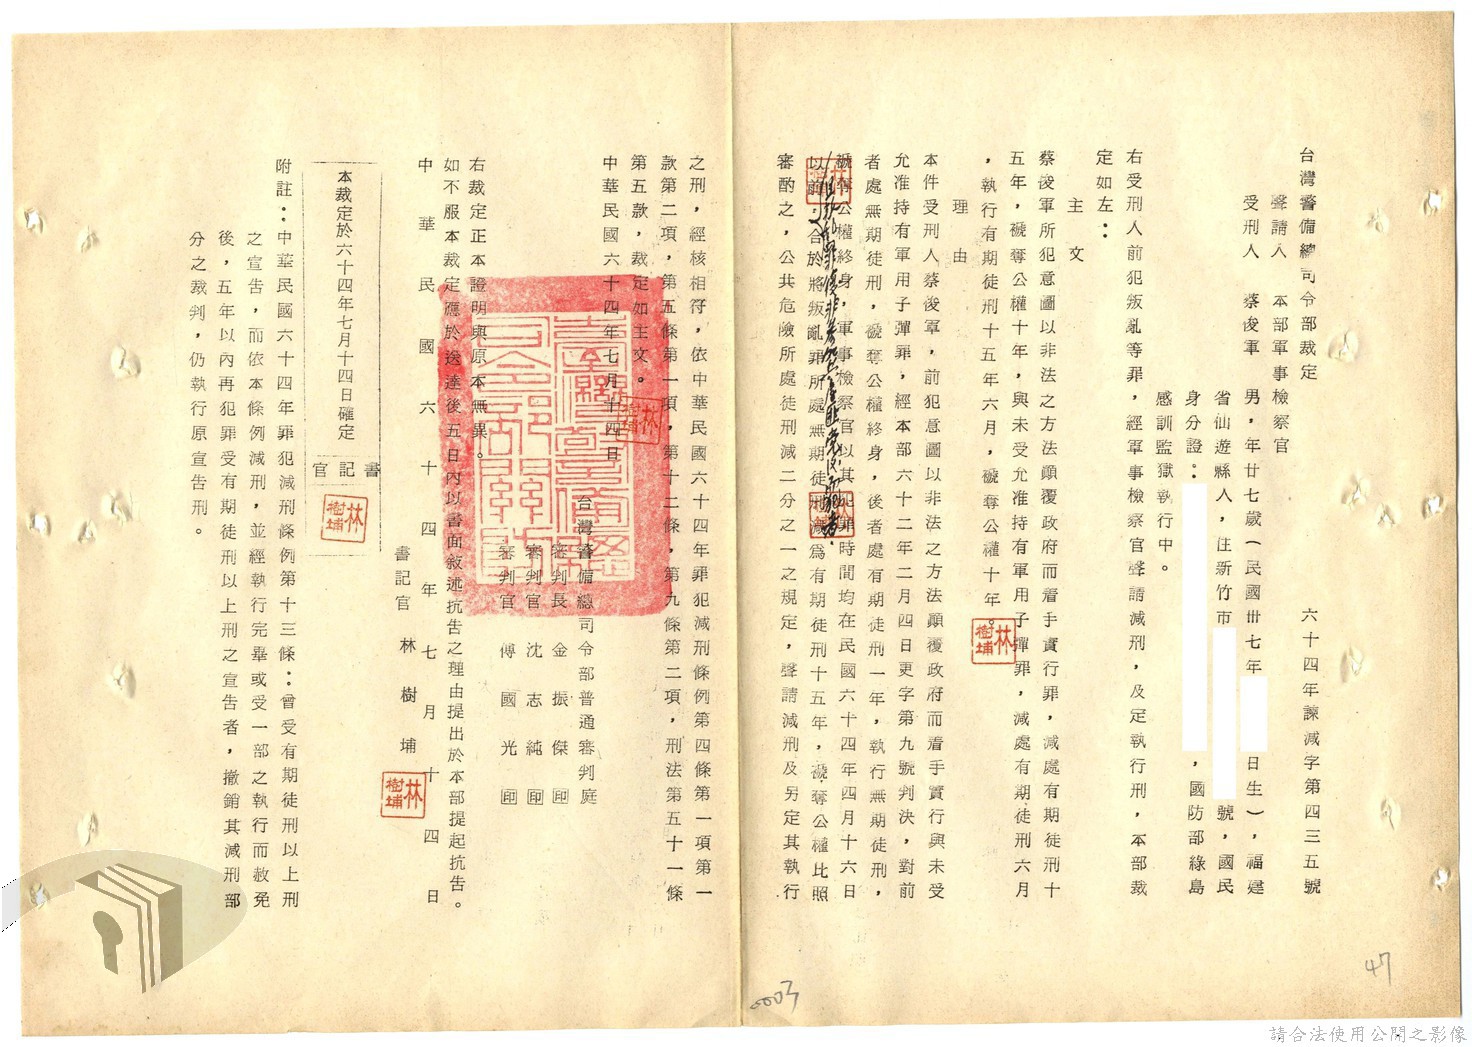 台灣警備總司令部裁定
六十四年諫減字第四三五號
聲請人　本部軍事檢察官
受刑人　蔡俊軍　男，年廿七歲（民國卅七年　日生），福建
省仙遊縣人，住新竹市　號，國民
身分證：　，國防部綠島
感訓監獄執行中。
右受刑人前犯叛亂等罪，經軍事檢察官聲請減刑，及定執行刑，本部裁
定如左：
主文
蔡俊軍所犯意圖以非法之方法顛覆政府而着手實行罪，減處有期徒刑十
五年，褫奪公權十年，與未受允准持有軍用子彈罪，減處有期徒刑六月
，執行有期徒刑十五年六月，褫奪公權十年。
林樹埔
理由
本件受刑人蔡俊軍，前犯意圖以非法之方法顛覆政府而着手實行與未受
允准持有軍用子彈罪，經本部六十二年二月四日更字第九號判決，對前
者處無期徒刑，褫奪公權終身，後者處有期徒刑一年，執行無期徒刑，
褫奪公權終身，軍事檢察官以其犯罪時間均在民國六十四年四月十六日
以前，又合於將叛亂罪所處無期徒刑減為有期徒刑十五年，褫奪公權比照
審酌之，公共危險所處徒刑減二分之一之規定，聲請減刑及另定其執行
之刑，經核相符，依中華民國六十四年罪犯減刑條例第四條第一項第一
款第二項，第五條第一項，第十二條，第九條第二項，刑法第五十一條
第五款，裁定如主文。
中華民國六十四年七月十四日
林樹埔
台灣警備總司令部普通審判庭
審判長　金振傑　印
審判官　沈志純　印
審判官　傅國光　印
右裁定正本證明與原本無異。
如不服本裁定應於送達後五日內以書面敘述抗告之理由提出於本部提起抗告。
中華民國六十四年七月十四日
書記官　林樹埔
林樹埔
本裁定於六十四年七月十四日確定
書記官
林樹埔
附註：中華民國六十四年罪犯減刑條例第十三條：曾受有期徒刑以上刑
之宣告，而依本條例減刑，並經執行完畢或受一部之執行而赦免
後，五年以內再犯罪受有期徒刑以上刑之宣告者，撤銷其減刑部
分之裁判，仍執行原宣告刑。
47
0003
請合法使用公開之影像